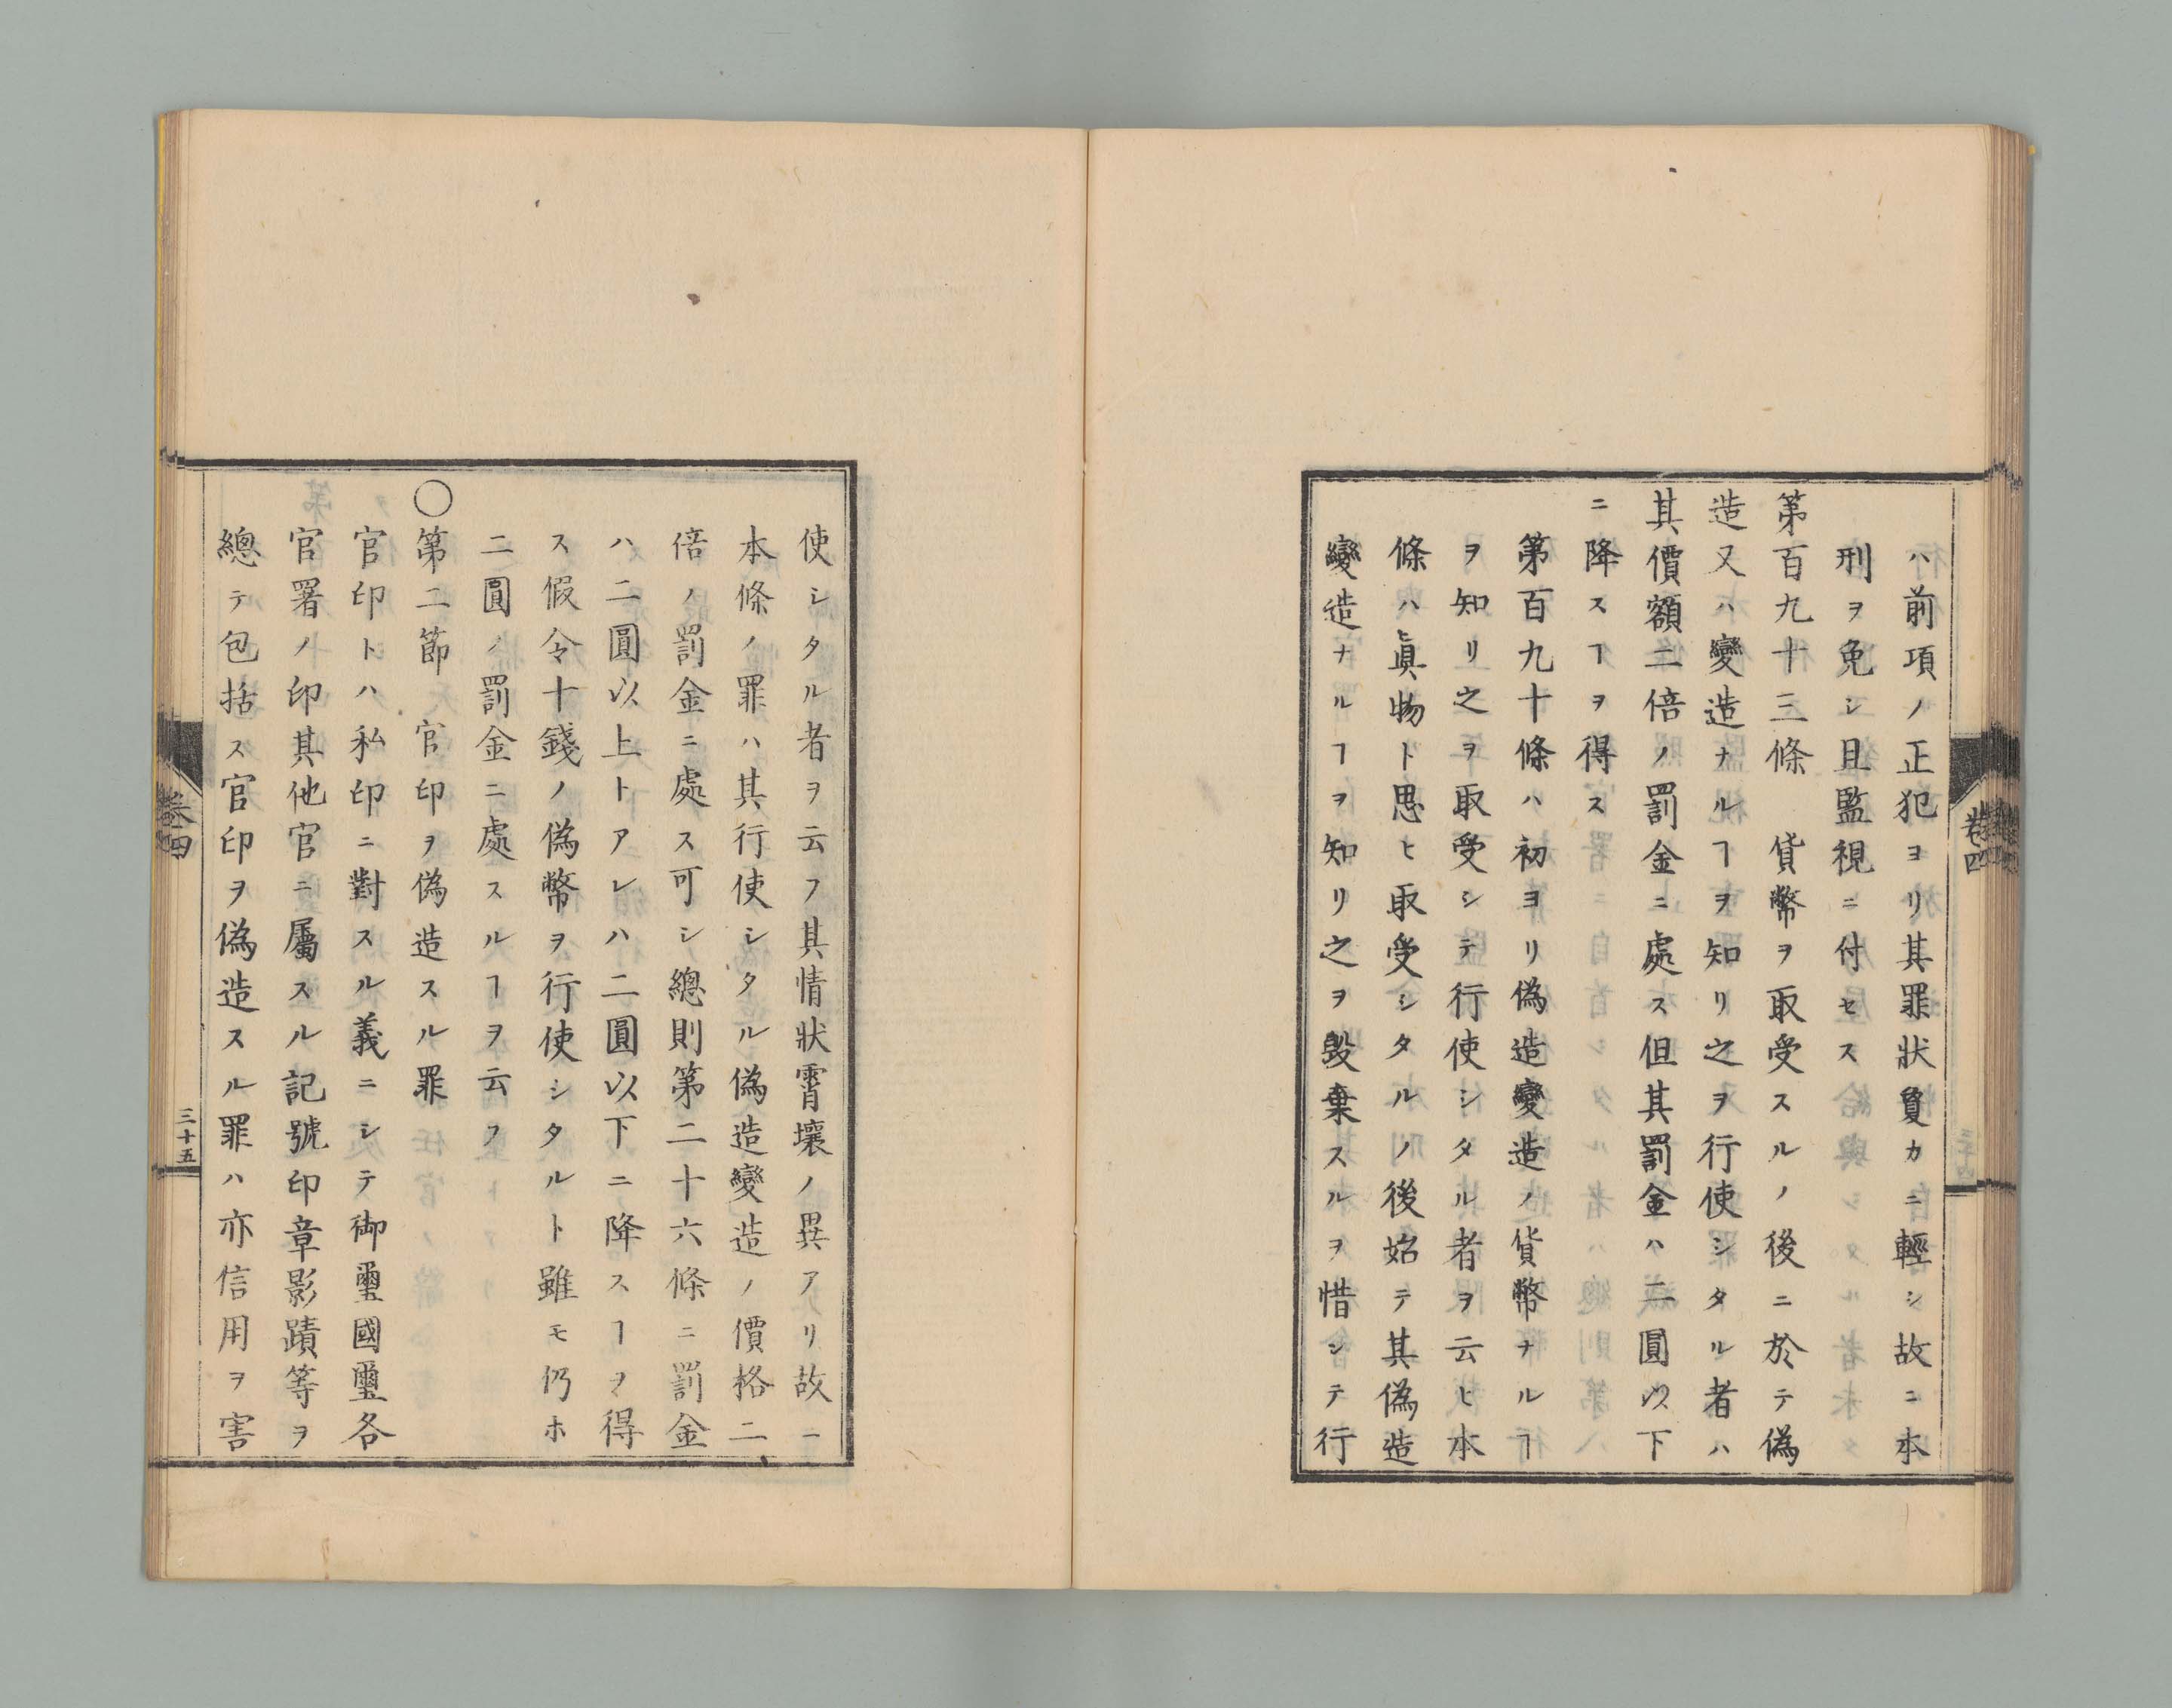 ハ前項ノ正犯ヨリ其罪狀負カニ輕シ故ニ本
刑ヲ免シ且監視ニ付セス
第百九十三條　貨幣ヲ取受スルノ後ニ於テ偽
造又ハ變造ナルヿヲ知リ之ヲ行使シタル者ハ
其價額二倍ノ罰金ニ處ス但其罰金ハ二圓以下
ニ降スヿヲ得ス
第百九十條ハ初ヨリ偽造變造ノ貨幣ナルヿ
ヲ知リ之ヲ取受シテ行使シタル者ヲ云ヒ本
條ハ眞物ト思ヒ取受シタルノ後始テ其偽造
變造ナルヿヲ知リ之ヲ毀棄スルヲ惜シテ行
卷四
使シタル者ヲ云フ其情狀霄壤ノ異アリ故ニ
本條ノ罪ハ其行使シタル偽造變造ノ價格二
倍ノ罰金ニ處ス可シ總則第二十六條ニ罰金
ハ二圓以上トアレハ二圓以下ニ降スヿヲ得
ス假令十錢ノ偽幣ヲ行使シタルト雖モ仍ホ
二圓ノ罰金ニ處スルヿヲ云フ
〇第二節　官印ヲ偽造スル罪
官印トハ私印ニ對スル義ニシテ御璽國璽各
官署ノ印其他官ニ屬スル記號印章影蹟等ヲ
總テ包括ス官印ヲ偽造スル罪ハ亦信用ヲ害
卷四
三十五